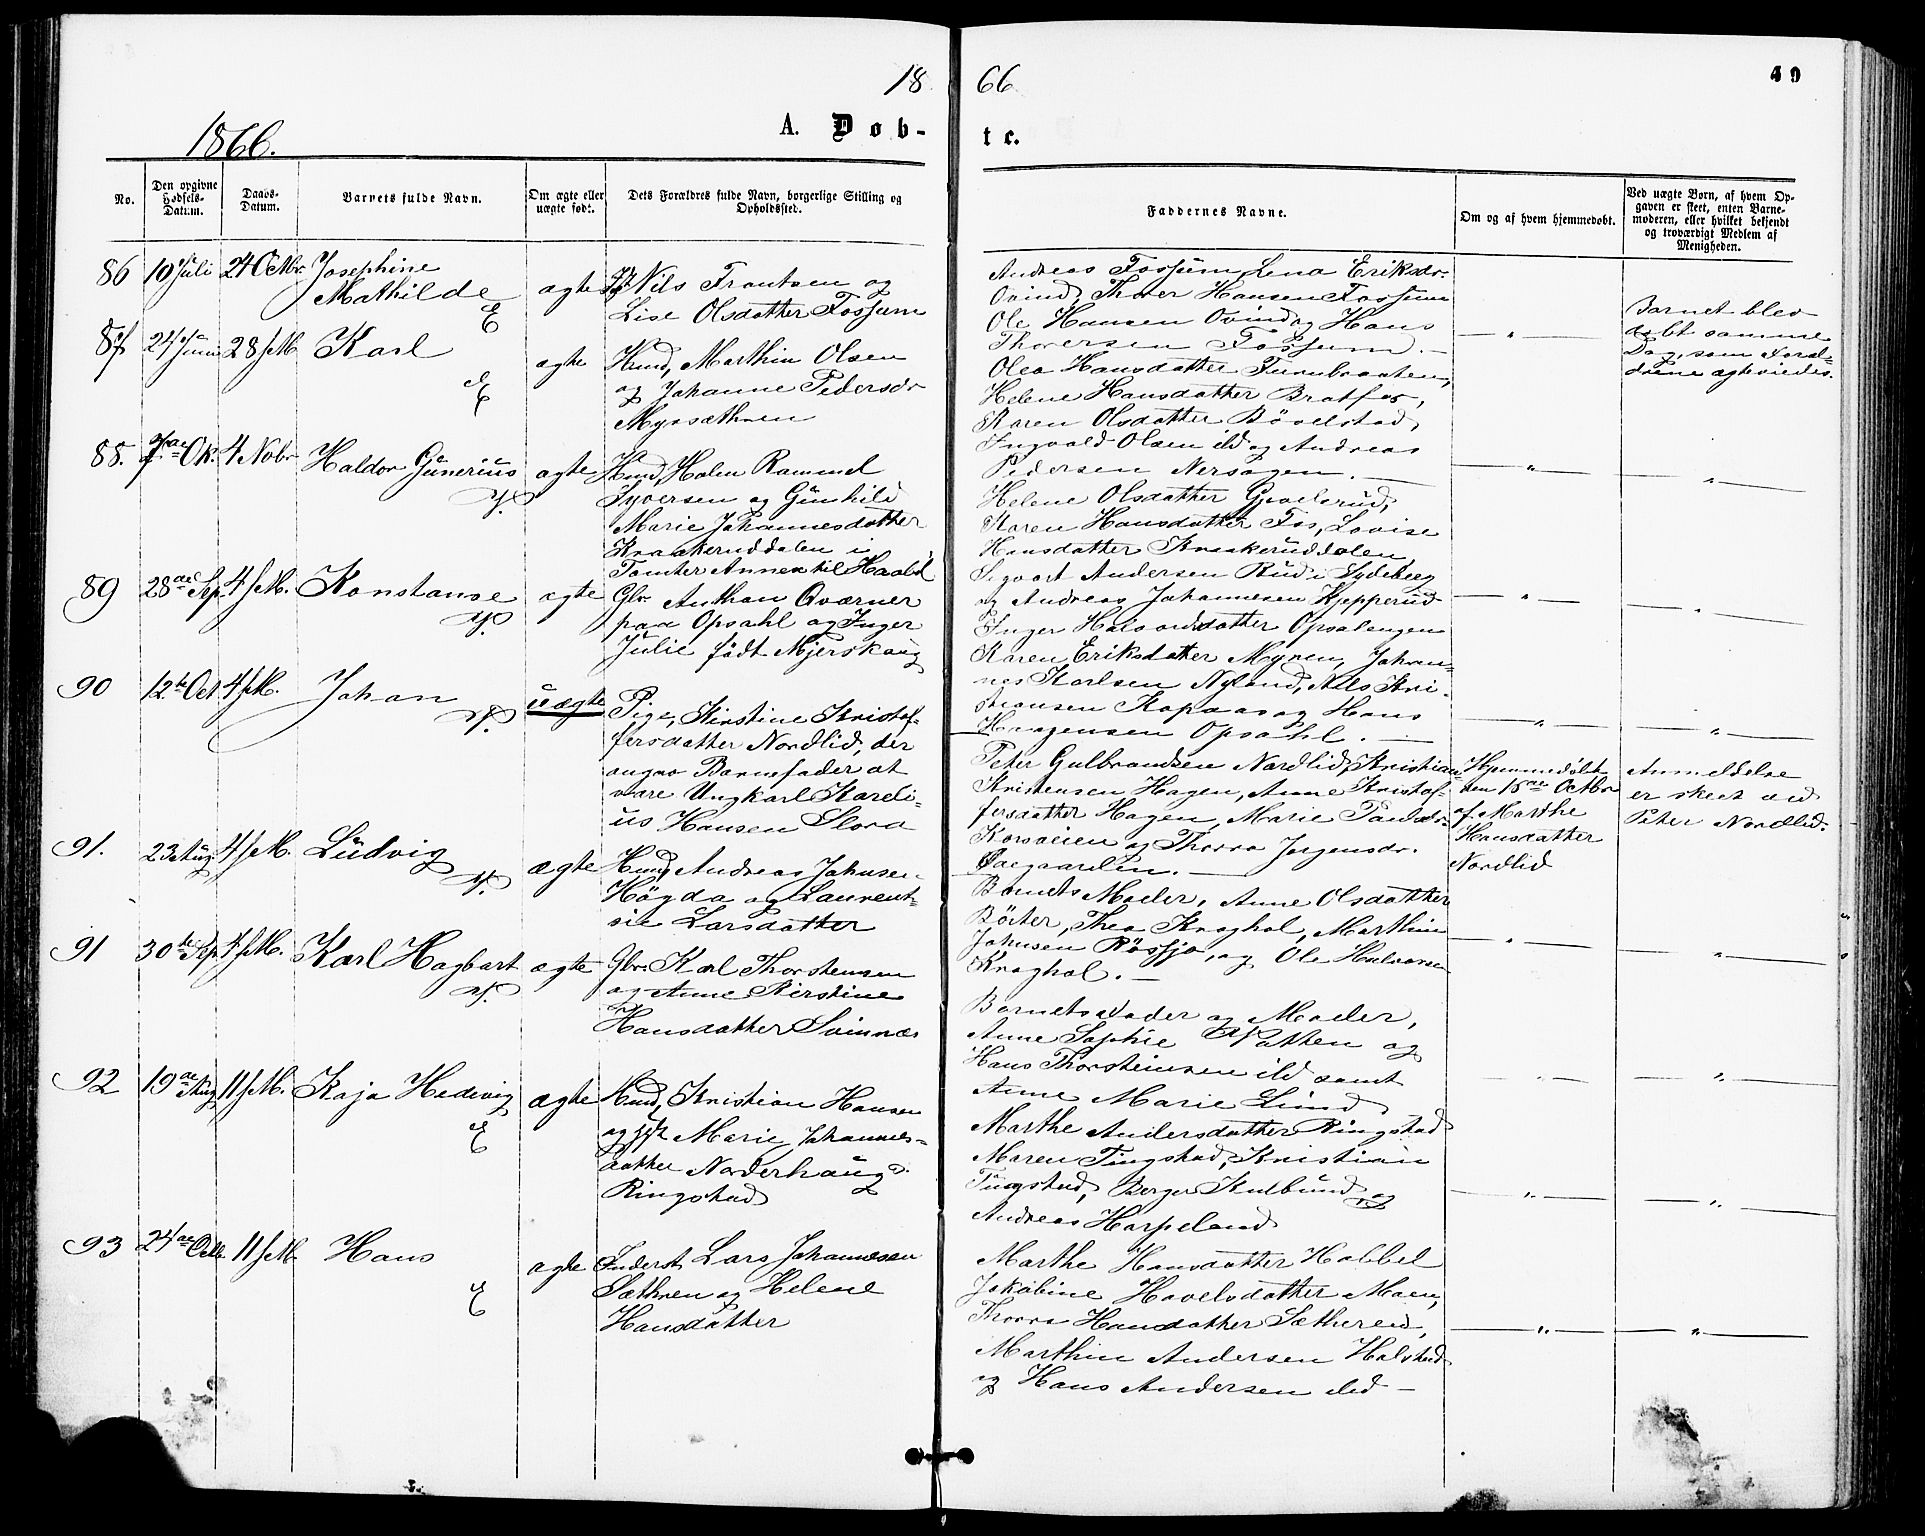 18 66
49
1866.
A. Døb-
te.
No.
Den opgivne
Fødsels-
Datum.
Daabs-
Datum.
Barnets fulde Navn.
Om ægte eller
uægte født.
Dets Forældres fulde Navn, borgerlige Stilling og
Opholdssted.
Faddernes Navne.
Om og af hvem hjemmedøbt.
Ved uægte Børn, af hvem Op-
gaven er skeet, enten Barne-
moderen, eller hvilket bekjendt
og troværdigt Medlem af
Menigheden.
86 10 Juli 24 Octbr Josephine
Mathilde
E
ægte
Nils Frantsen og
Lise Olsdatter Fossum
Andreas Fossum, Lena Eriksdr.
Ovind, Thorer Hansen Fossum
Ole Hansen Ovind og Hans
Thoresen Fossum. —
— " —
Barnet blev
døbt samme
Dag, som Foræl-
drene ægteviedes.
87 24 Juni 28 s M. Karl
E
ægte
Husmd, Marthin Olsen
og Johanne Pedersdr
Myrsæthren
Olea Hansdatter Furubraaten,
Helene Hansdatter Bratfos,
Karen Olsdatter Bövelstad,
Ingvald Olsen ibd og Andreas
Pedersen Nersagen. —
— " —
— " —
88. 7de Ok. 4 Nobr Haldor Gunerius
V.
ægte
Husmd, Halen Rammel
Syversen og Gunhild
Marie Johannesdatter
Kraakeruddalen i
Tomter Annex til Haabøl
Helene Olsdatter Gjvelsrud,
Karen Hansdatter Fos, Lovise
Hansdatter Kraakeruddalen,
Sigvart Andersen Rud i Spdeberg
og Andreas Johannesen Kjepperud
— " —
— " —
89 28de Sep. 4 s M. Konstanse
V.
ægte
Gbr. Anthon Qværner
paa Opsahl og Inger
Julie født Mjerskaug
Inger Halvordsdatter Opsalengen
Karen Eriksdatter Myren, Johan-
nes Karlsen Nyland, Nils Kri-
stiansen Kopaas og Hans
Haagensen Opsahl. —
— " —
— " —
90 12te Oct 4 s M. Johan
V.
uægte
Pige, Kirstine Kristof-
fersdatter Nordlid, der
angav Barnefader at
være Ungkarl Kareli-
us Hansen Slora
Peter Gulbrandsen Nordlid, Kristian
Kristensen Hagen, Anne Kristof-
fersdatter Hagen, Marie Paulsdr.
Korsveien og Thorra Jørgensdr.
Hjemmedøbt
den 15de Octbr
af Marthe
Hansdatter
Nordlid
Anmeldelse
er skeet ved
Peter Nordlid.
91. 23 Aug. 4 s M. Ludvig
V.
ægte
Husmd, Andreas Johnsen
Högda og Laurent-
sie Larsdatter
Barnets Moder, Anne Olsdatter
Börter, Thea Kraghol, Marthin
Johnsen Rössjø, og Ole Halvorsen
Kraghol. —
— " —
— " —
91 30te Sep. 4 s M. Karl Hagbart
V.
ægte
Gbr. Karl Thorstensen
og Anne Kirstine
Hansdatter Svinnæs
Barnets Fader og Moder,
Anne Sophie Natten og
Hans Thorsteinsen ibd samt
Anne Marie Lund
— " —
— " —
92 19de Aug. 11 s M. Kaja Hedevig
E
ægte
Husmd, Kristian Hansen
og Hst Marie Johannes-
datter Norderhaug
Ringstad
Marthe Andersdatter Ringstad
Maren Tingstad, Kristian
Tingstad, Berger Kulbund og
Andreas Harpeland
— " —
— " —
93 24de Octb 11 s M. Hans
E
ægte
Inderst, Lars Johannesen
Sæthren og Helene
Hansdatter
Marthe Hansdatter Habbel
Jakobine Hovelsdatter Moen,
Thorra Hansdatter Sætheren,
Marthin Andersen Halstad
og Hans Andersen ibd —
— " —
— " —